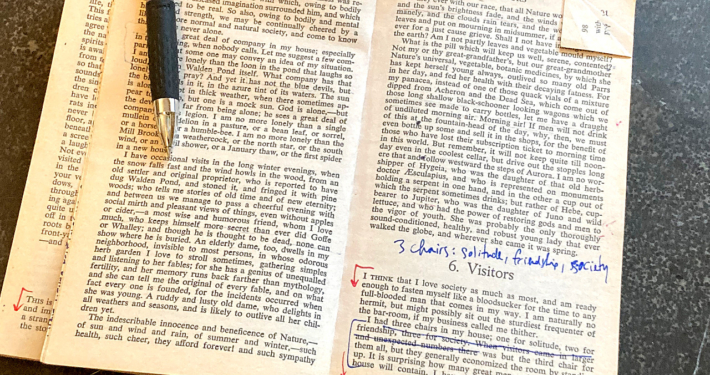 life,
tries
agree
est and
spirits
is away
from the
sounds
the sing
dren c
rats in
never
beneath
a scree
blue ja
a laugh
Not ev
visited
in you
down,
through
ing aga
quite t
off in
roots b
front-y
—and
THIS is
and im
a stran
the sto
which, owing to bodily
diseased imagination surround him, and which
to be real. So also, owing to bodily and mental
strength, we may be continually cheered by a
more normal and natural society, and come to know
never alone.
great deal of company in my house; especially
when nobody calls. Let me suggest a few com-
some one may convey an idea of my situation.
lonely than the loon in the pond that laughs so
Walden Pond itself. What company has that
pray? And yet it has not the blue devils, but
in it, in the azure tint of its waters. The sun
in thick weather, when there sometimes ap-
but one is a mock sun. God is alone,—but
far from being alone; he sees a great deal of
legion. I am no more lonely than a single
mullein or dandelion in a pasture, or a bean leaf, or sorrel,
or a horse-fly, or a humble-bee. I am no more lonely than the
Mill Brook, or a weathercock, or the north star, or the south
wind, or an April shower, or a January thaw, or the first spider
in a new house.
I have occasional visits in the long winter evenings, when
the snow falls fast and the wind howls in the wood, from an
old settler and original proprietor, who is reported to have
dug Walden Pond, and stoned it, and fringed it with pine
woods; who tells me stories of old time and of new eternity;
and between us we manage to pass a cheerful evening with
social mirth and pleasant views of things, even without apples
or cider,—a most wise and humorous friend, whom I love
much, who keeps himself more secret than ever did Goffe
or Whalley; and though he is thought to be dead, none can
show where he is buried. An elderly dame, too, dwells in my
neighborhood, invisible to most persons, in whose odorous
herb garden I love to stroll sometimes, gathering simples
and listening to her fables; for she has a genius of unequalled
fertility, and her memory runs back farther than mythology,
and she can tell me the original of every fable, and on what
fact every one is founded, for the incidents occurred when
she was young. A ruddy and lusty old dame, who delights in
all weathers and seasons, and is likely to outlive all her chil-
dren yet.
The indescribable innocence and beneficence of Nature,—
of sun and wind and rain, of summer and winter,—such
health, such cheer, they afford forever! and such sympathy
ever with our race, that all Nature wo
and the sun's brightness fade, and the winds
manely, and the clouds rain tears, and the wo
leaves and put on mourning in midsummer, if a
ever for a just cause grieve. Shall I not have in
the earth? Am I not partly leaves and vegetable mould myself?
What is the pill which will keep us well, serene, contented?
Not my or thy great-grandfather's, but our great-grandmother
Nature's universal, vegetable, botanic medicines, by which she
has kept herself young always, outlived so many old Parrs
in her day, and fed her health with their decaying fatness. For
my panacea, instead of one of those quack vials of a mixture
dipped from Acheron and the Dead Sea, which come out of
those long shallow black-schooner looking wagons which we
sometimes see made to carry bottles, let me have a draught
of undiluted morning air. Morning air! If men will not drink
of this at the fountain-head of the day, why, then, we must
even bottle up some and sell it in the shops, for the benefit of
those who have lost their subscription ticket to morning time
in this world. But remember, it will not keep quite till noon-
day even in the coolest cellar, but drive out the stopples long
ere that and follow westward the steps of Aurora. I am no wor-
shipper of Hygeia, who was the daughter of that old herb-
doctor Æsculapius, and who is represented on monuments
holding a serpent in one hand, and in the other a cup out of
which the serpent sometimes drinks; but rather of Hebe, cup-
bearer to Jupiter, who was the daughter of Juno and wild
lettuce, and who had the power of restoring gods and men to
the vigor of youth. She was probably the only thoroughly
sound-conditioned, healthy, and robust young lady that ever
walked the globe, and wherever she came it was spring.
3 chairs: solitude, friendship, society
6. Visitors
I THINK that I love society as much as most, and am ready
enough to fasten myself like a bloodsucker for the time to any
full-blooded man that comes in my way. I am naturally no
hermit, but might possibly sit out the sturdiest frequenter of
the bar-room, if my business called me thither.
I had three chairs in my house; one for solitude, two for
friendship, three for society. When visitors came in larger
and unexpected numbers there was but the third chair for
them all, but they generally economized the room by
up. It is surprising how many great men
house will contain. I
98
with